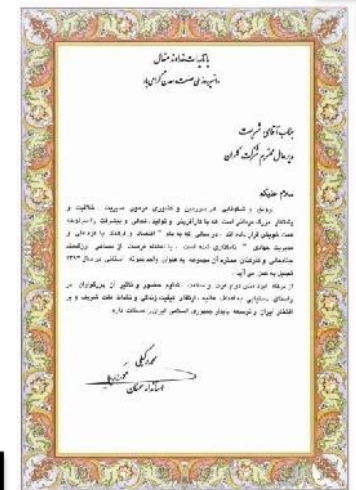 با تأییدات خداوند متعال
روز ملی صنعت و معدن گرامی باد
جناب آقای شریعت
مدیر عامل محترم شرکت کلران
سلام علیکم
رونق و شکوفایی هر سرزمین و کشوری مرهون مدیریت، خلاقیت و
پشتکار بزرگ مردانی است که با کارآفرینی و تولید، تعالی و پیشرفت را سرلوحه
همت خویش قرار داده اند. در سالی که به نام " اقتصاد و فرهنگ با عزم ملی و
مدیریت جهادی " نامگذاری شده است، با اهدای از مساعی ارزشمند
جنابعالی و کارکنان محترم آن مجموعه به عنوان واحد نمونه استانی در سال ۱۳۹۳
تجلیل به عمل می آید.
از درگاه ایزد منان دوام عزت و سلامت، تداوم حضور و تاثیر آن بزرگواران در
راستای دستیابی به اهداف عالیه، ارتقای کیفیت زندگی و نشاط ملت شریف و پر
افتخار ایران و توسعه پایدار جمهوری اسلامی ایران را مسئلت دارم
استاندار سمنان